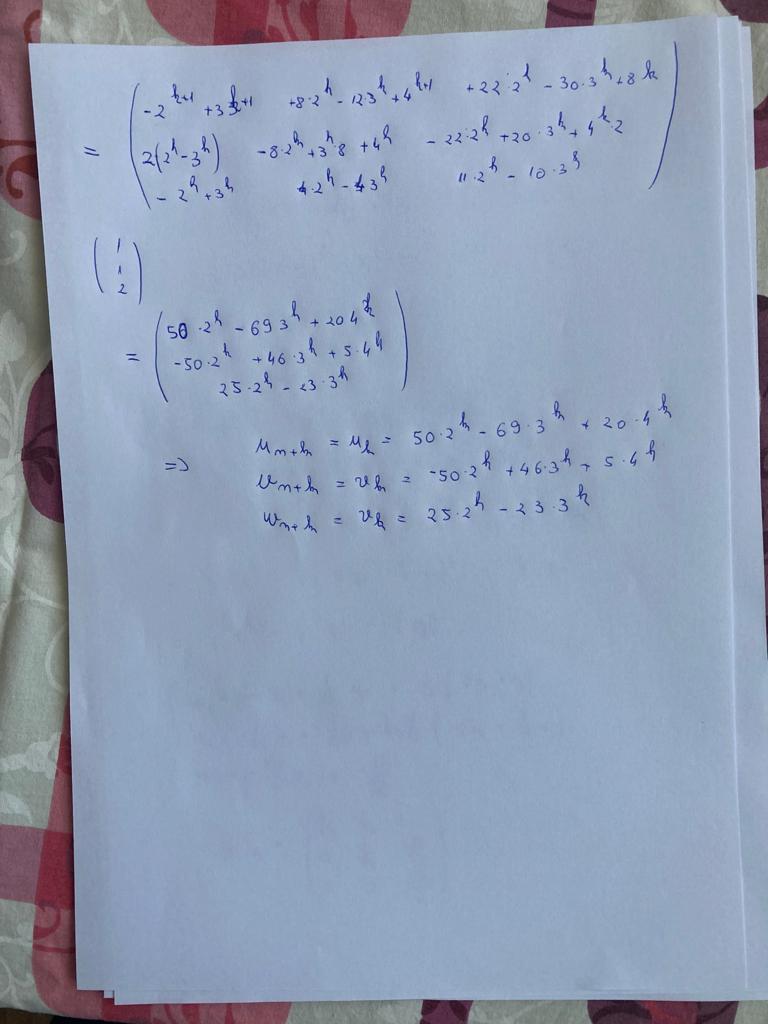 = ( -2^{k+1} + 3 3^{k+1} +8·2^k - 12·3^k + 4^{k+1} + 22·2^k - 30·3^k + 8^k
2(2^k - 3^k) -8·2^k + 3^k 8 + 4^k - 22·2^k + 20·3^k + 4^k·2
- 2^k + 3^k 4·2^k - 4 3^k 11·2^k - 10·3^k )
( 1
1
2 )
= ( 50·2^k - 69 3^k + 20 4^k
-50·2^k + 46·3^k + 5·4^k
25·2^k - 23·3^k )
=> u_{n+k} = u_k = 50·2^k - 69·3^k + 20·4^k
v_{n+k} = v_k = -50·2^k + 46·3^k + 5·4^k
w_{n+k} = v_k = 25·2^k - 23·3^k